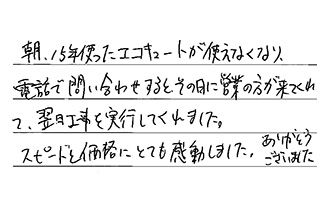 朝、15年使ったエコキュートが使えなくなり、
電話で問い合わせするとその日に営業の方が来てくれ
て、翌日工事を実行してくれました。
スピードと価格にとても感動しました。ありがとう
ございました